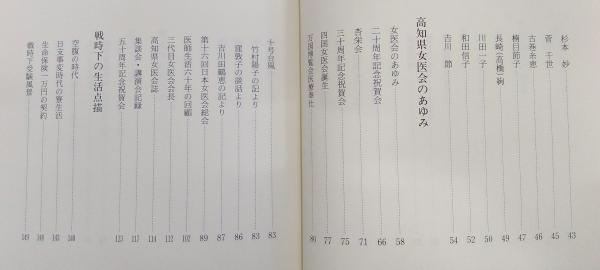 杉本 妙 43
菅 千世 45
古巻 糸恵 46
楠目 節子 47
長崎(高橋)絢 49
川田 一子 50
和田 信子 52
吉川 節 54
高知県女医会のあゆみ
女医会のあゆみ 58
二十周年記念祝賀会 66
杏栄会 71
三十周年記念祝賀会 75
四国女医会誕生 77
万国博覧会医療奉仕 80
十号台風 83
竹村陽子の記より 83
窪敦子の談話より 86
吉川田鶴恵の記より 87
第十六回日本女医会総会 89
医師生活六十年の回顧 102
三代目女医会会長 112
高知県女医会誌 114
集談会・講演会記録 117
五十周年記念祝賀会 123
戦時下の生活点描
空腹の時代 140
日支事変時代の寮生活 143
生命保険一万円の契約 148
戦時下受験風景 149